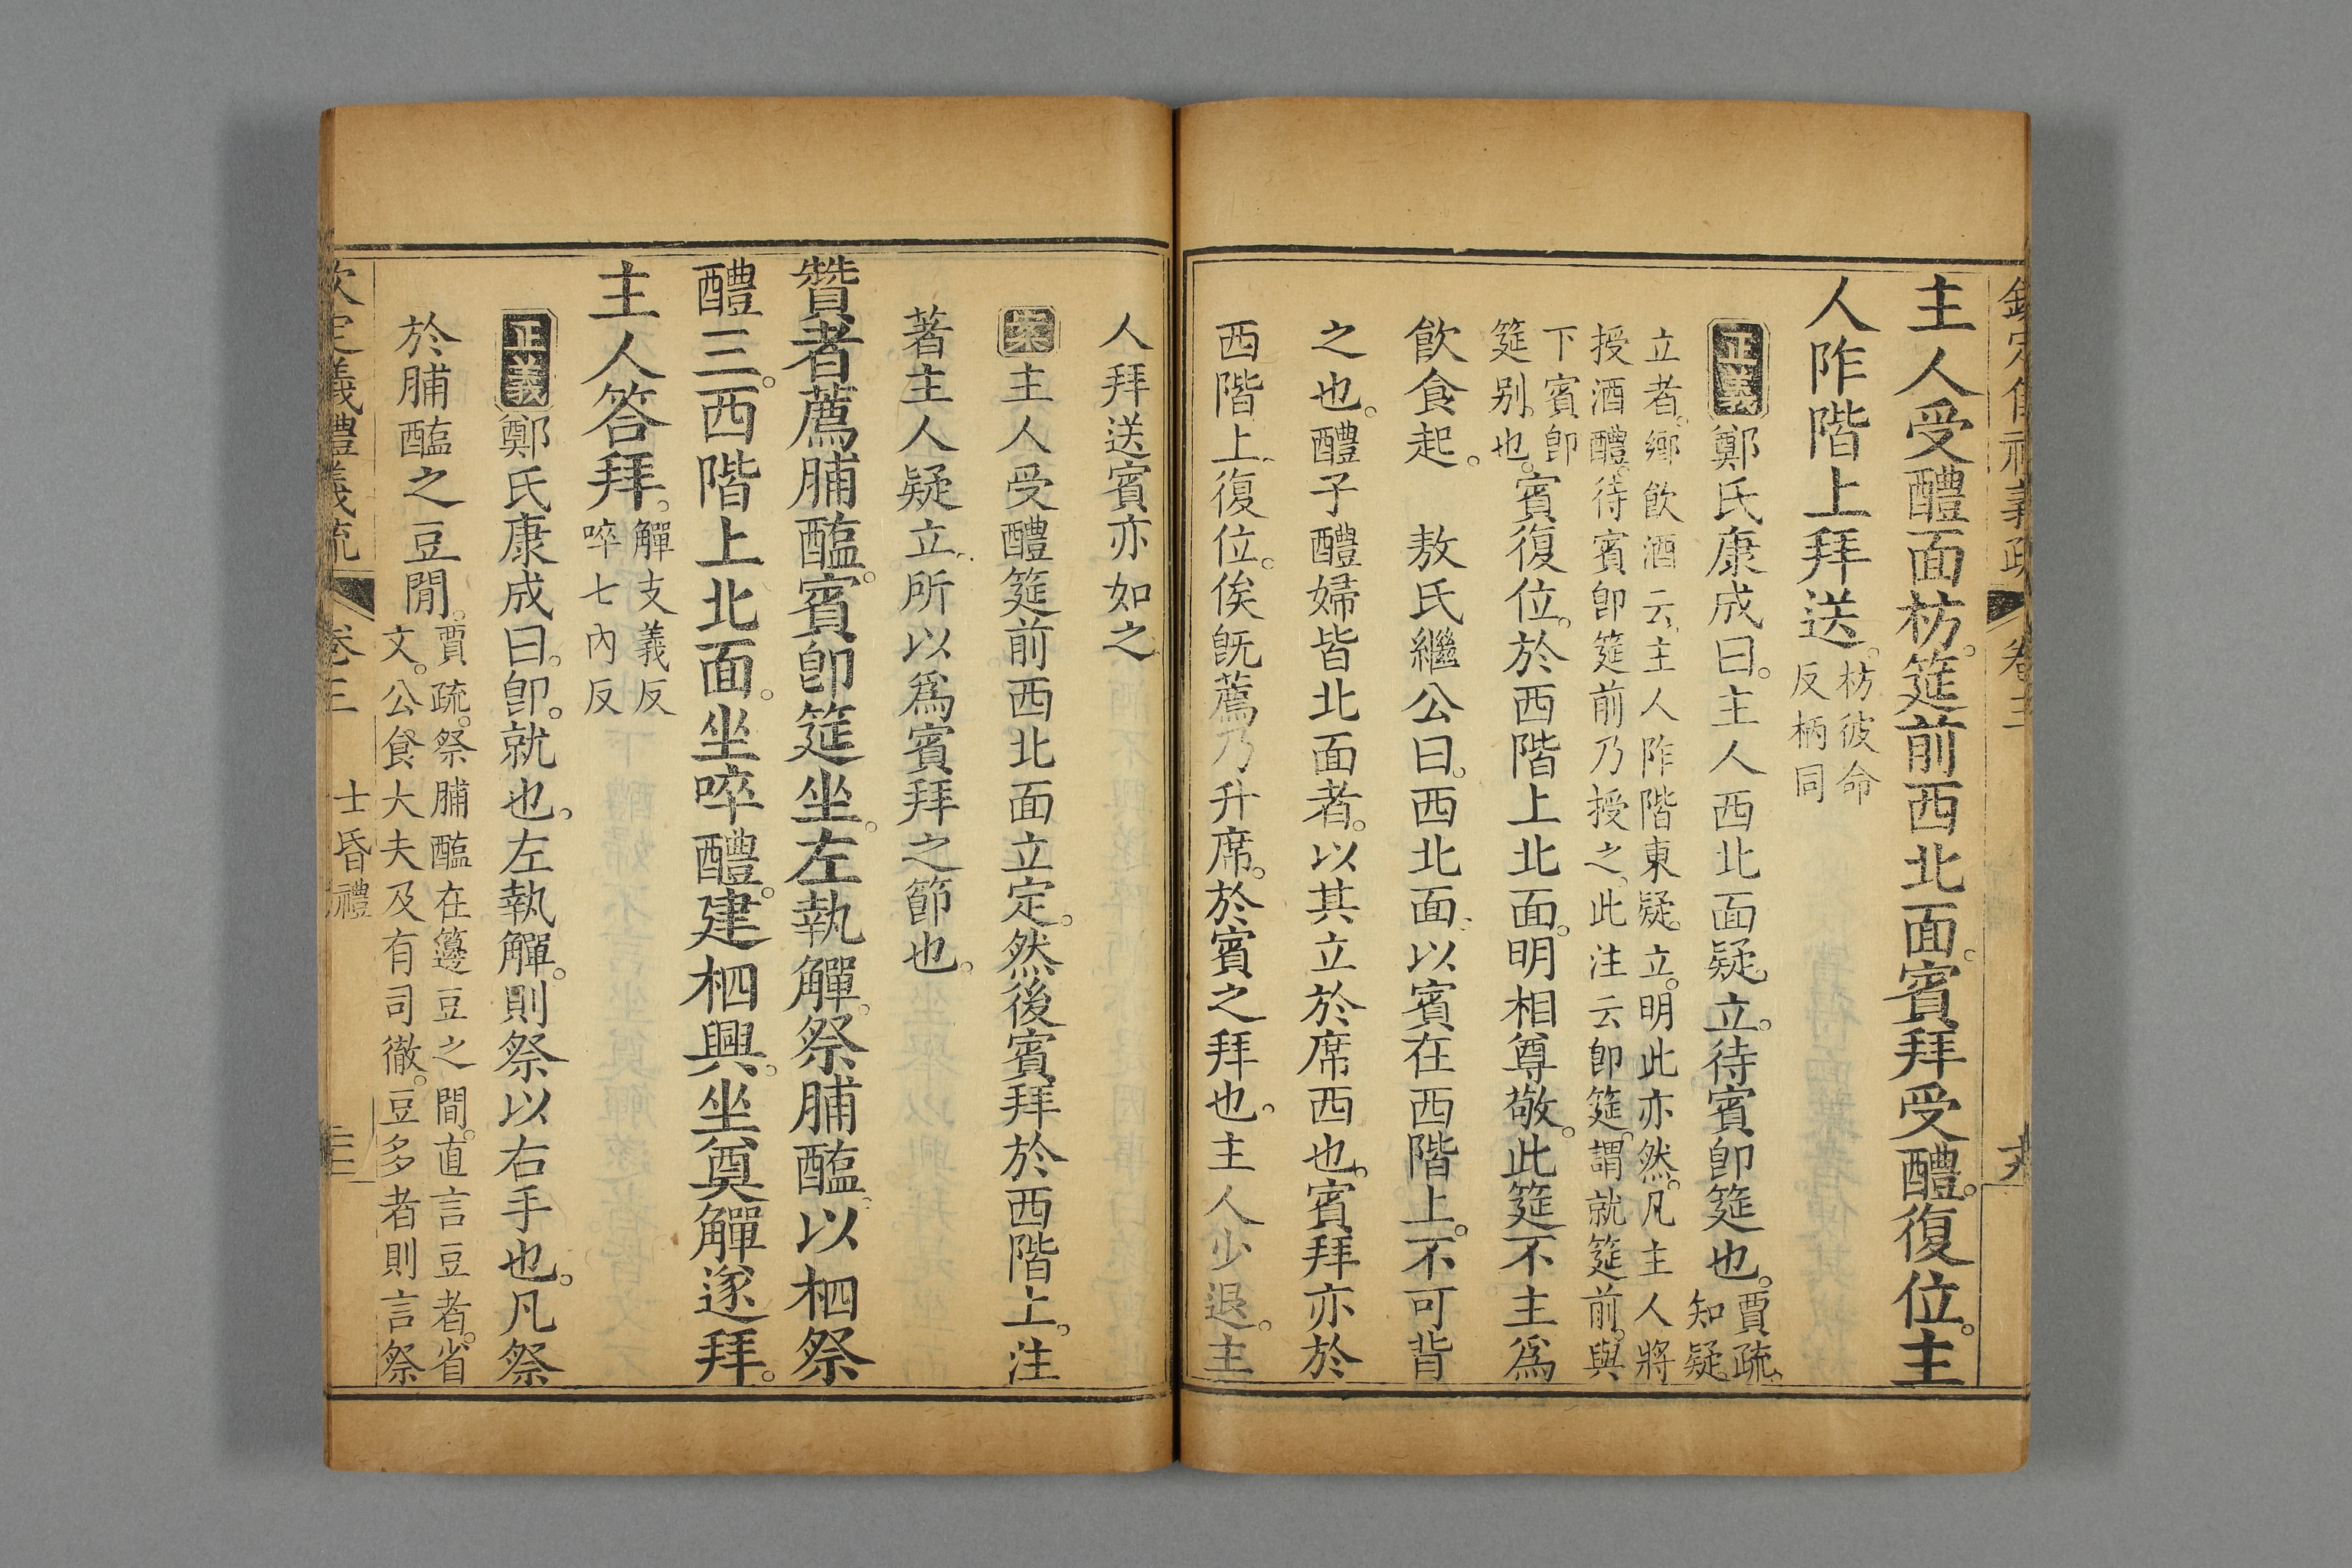 主人受醴面枋。筵前西北面。賓拜受醴。復位。主
人阼階上拜送。枋彼命
反柄同
正義鄭氏康成曰。主人西北面疑立。待賓卽筵也。賈疏、
知疑
立者。鄉飲酒云、主人阼階東疑立。明此亦然。凡主人將
授酒醴。待賓卽筵前乃授之。此注云卽筵。謂就筵前。與
下賓卽
筵別也。賓復位。於西階上北面。明相尊敬。此筵不主爲
飲食起。 敖氏繼公曰。西北面、以賓在西階上。不可背
之也。醴子醴婦皆北面者。以其立於席西也。賓拜亦於
西階上、復位。俟旣薦乃升席。於賓之拜也。主人少退。主
人拜送賓亦如之、
案主人受醴筵前西北面立定。然後賓拜於西階上。注
著主人疑立、所以爲賓拜之節也。
贊者薦脯醢。賓卽筵坐。左執觶。祭脯醢、以柶祭
醴三。西階上北面。坐啐醴。建柶興。坐奠觶遂拜。
主人答拜。觶支義反
啐七內反
正義鄭氏康成曰。卽。就也。左執觶。則祭以右手也。凡祭
於脯醢之豆閒。賈疏。祭脯醢在籩豆之閒。直言豆者。省
文。公食大夫及有司徹。豆多者則言祭
卷三 士昏禮